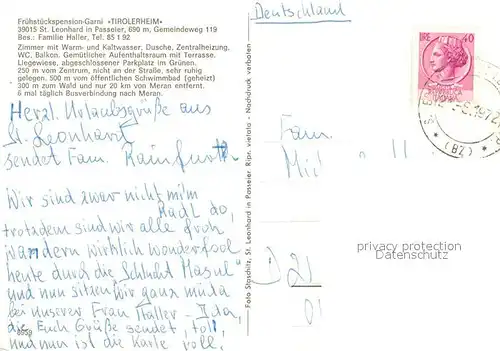 Frühstückspension-Garni »TIROLERHEIM«
39015 St. Leonhard in Passeier, 690 m, Gemeindeweg 119
Bes.: Familie Haller, Tel. 85 1 92
Zimmer mit Warm- und Kaltwasser, Dusche, Zentralheizung,
WC, Balkon. Gemütlicher Aufenthaltsraum mit Terrasse.
Liegewiese, abgeschlossener Parkplatz im Grünen.
250 m vom Zentrum, nicht an der Straße, sehr ruhig
gelegen. 500 m vom öffentlichen Schwimmbad (geheizt)
300 m zum Wald und nur 20 km von Meran entfernt.
6 mal täglich Busverbindung nach Meran.
Herzl. Urlaubsgrüße aus
St. Leonhard
sendet Fam. Rainfurth
Wir sind zwar nicht mim
Radl do,
trotzdem sind wir alle froh
wandern wirklich wonderfool
heute durch die Schlucht Masul
und nun sitzen wir ganz müda
bei unserer Frau Haller - Ida,
die Euch Grüße sendet, toll,
und nun ist die Karte voll.
8959
Foto Staschitz, St. Leonhard in Passeier Ripr. vietata - Nachdruck verboten
Deutschland
LIRE 40
1972
(BZ)
Fam.
D 21
privacy protection
Datenschutz